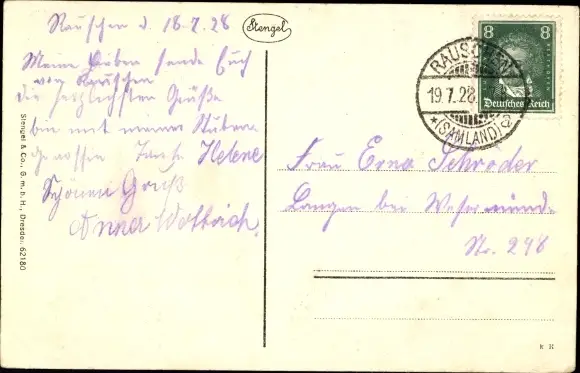 Rauschen d. 18.7.28
Meine Lieben sende Euch
von Rauschen
die herzlichsten Grüße
bin mit meiner Stuben
genossen Tante Helene
Schönen Gruß
Anna
Stengel
Stengel & Co., G. m. b. H., Dresden 62180
8 8
Deutsches Reich
RAUSCHEN
19.7.28
* (SAMLAND) a
Frau Erna Schröder
Langen bei Wesermünde
Nr. 298